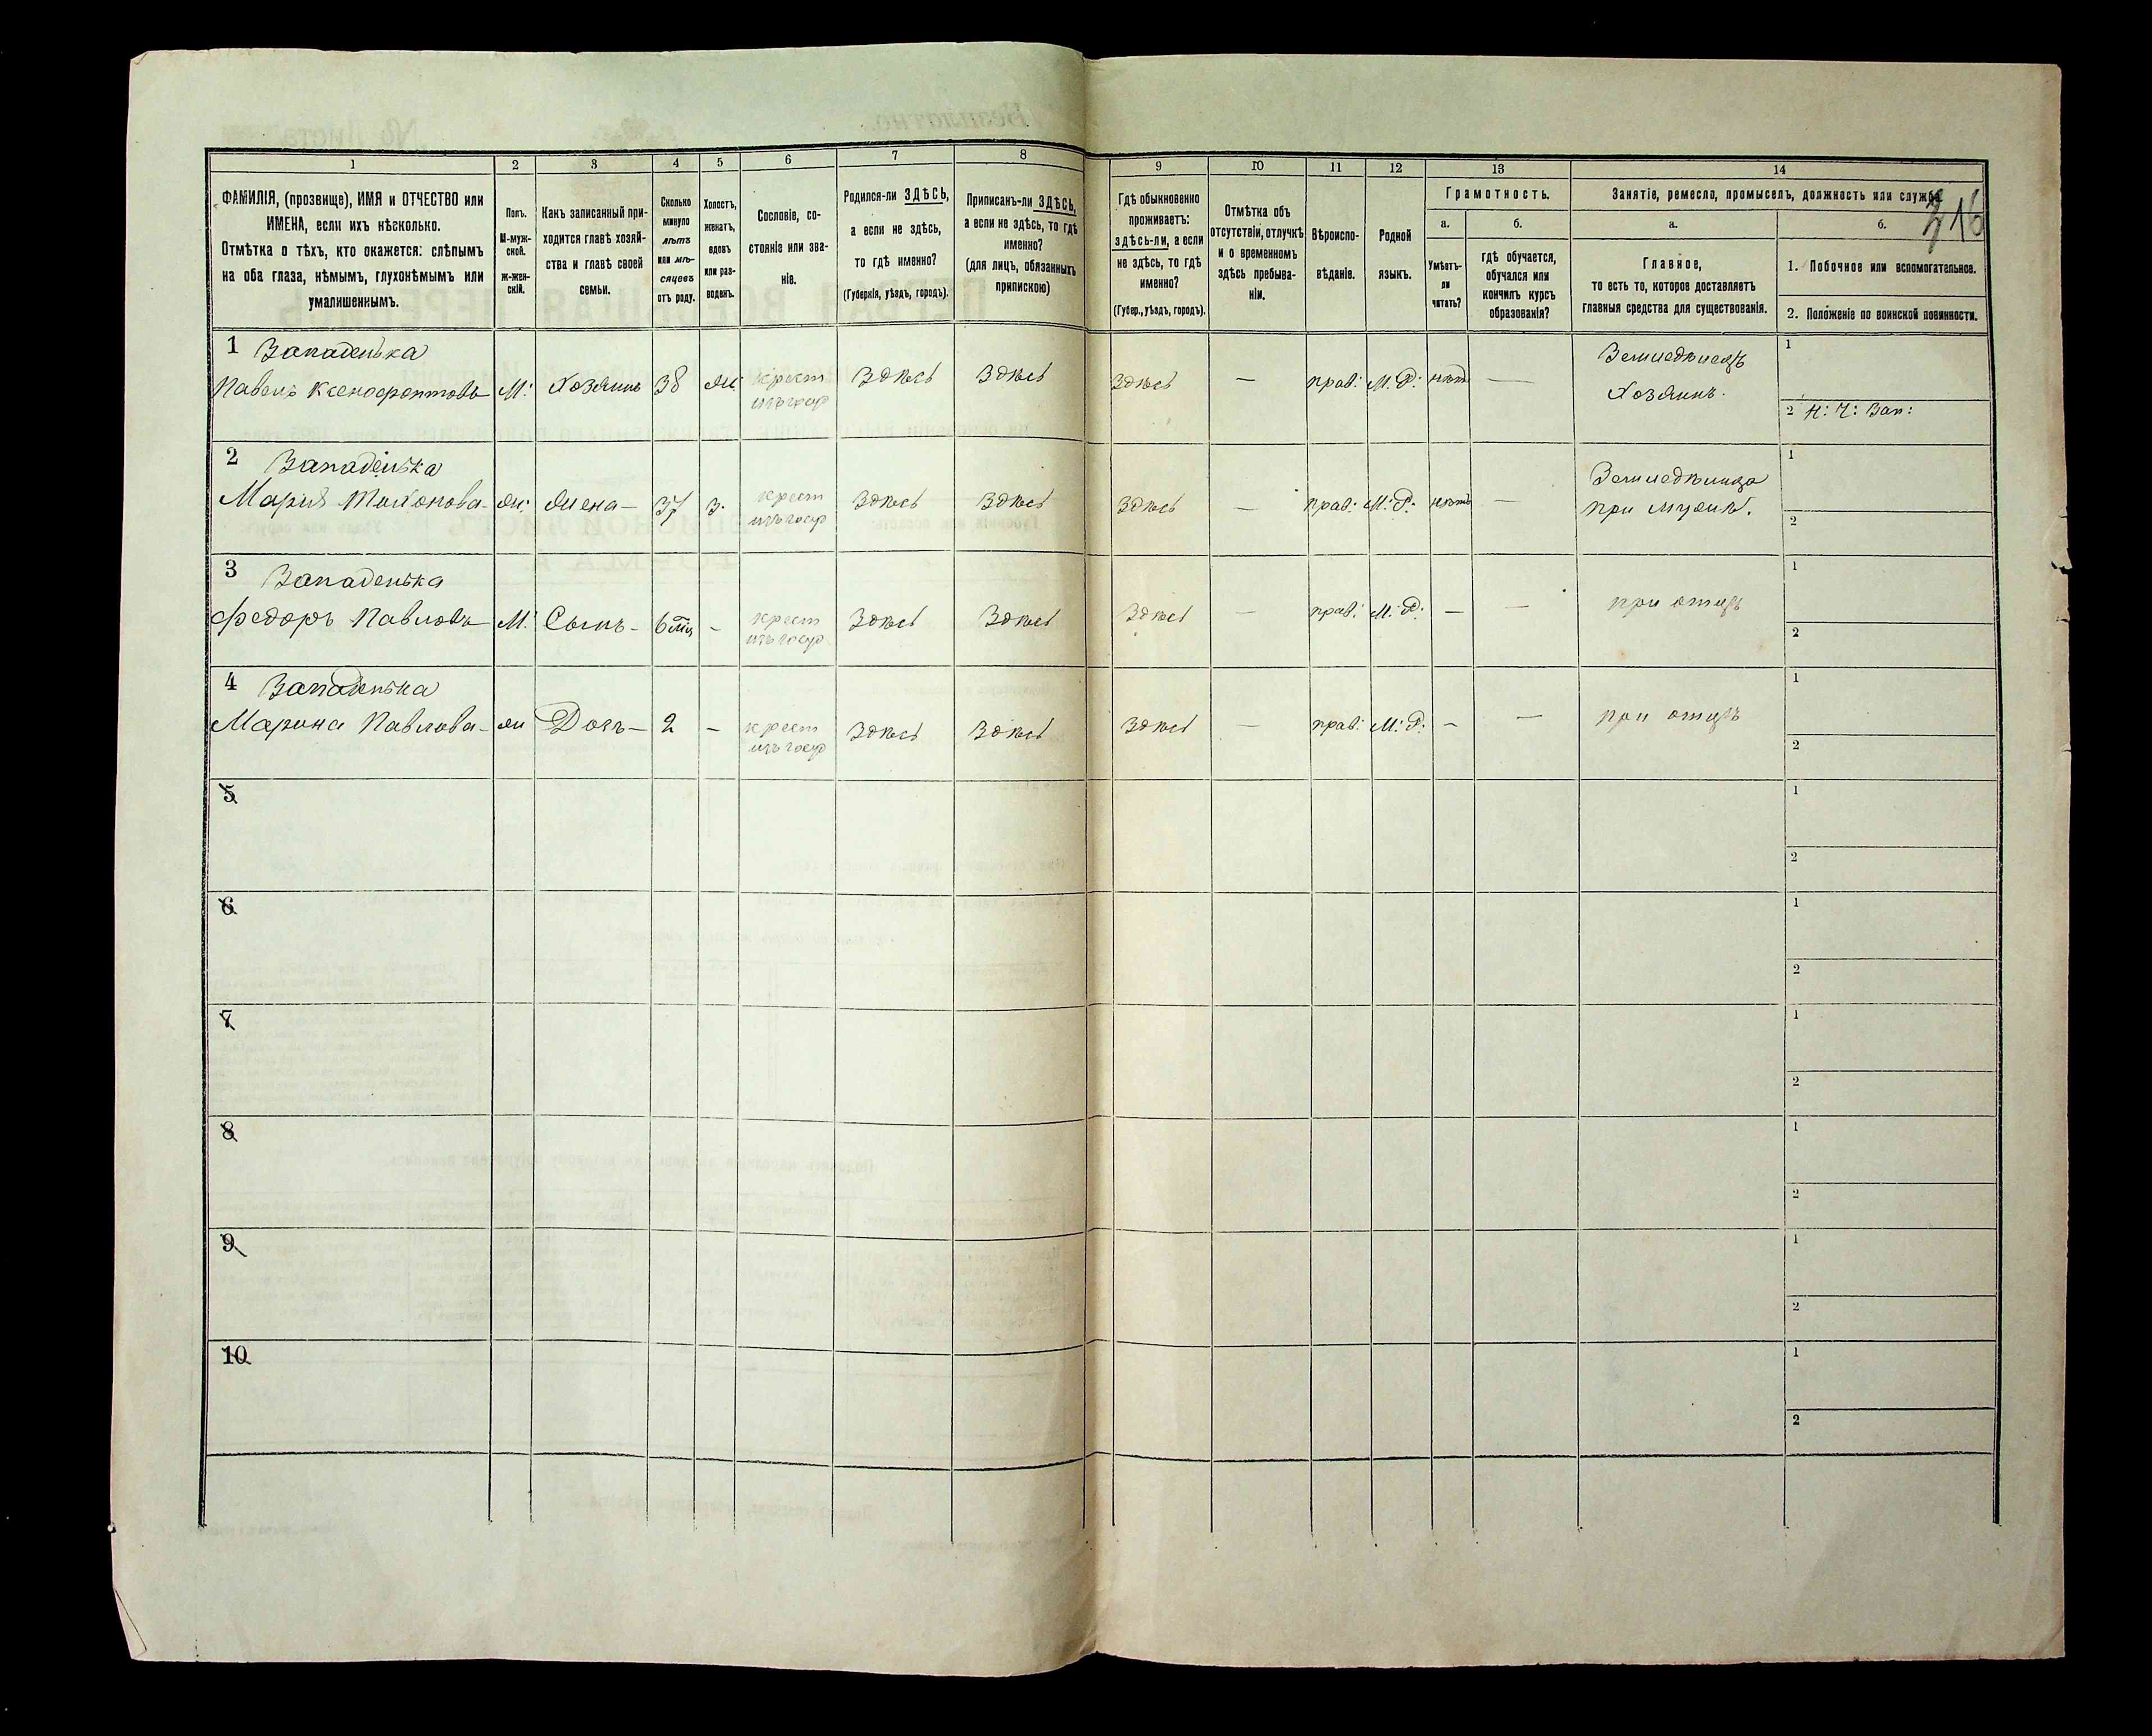 1 2 3 4 5 6 7 8 9 10 11 12 13 14
ФАМИЛІЯ, (прозвище), ИМЯ и ОТЧЕСТВО или
ИМЕНА, если ихъ нѣсколько.
Отмѣтка о тѣхъ, кто окажется: слѣпымъ
на оба глаза, нѣмымъ, глухонѣмымъ или
умалишеннымъ.
Полъ.
М-муж-
ской.
ж-жен-
скій.
Какъ записанный при-
ходится главѣ хозяй-
ства и главѣ своей
семьи.
Сколько
минуло
лѣтъ
или мѣ-
сяцевъ
отъ роду.
Холостъ,
женатъ,
вдовъ
или раз-
веденъ.
Сословіе, со-
стояніе или зва-
ніе.
Родился-ли ЗДѢСЬ,
а если не здѣсь,
то гдѣ именно?
(Губернія, уѣздъ, городъ).
Приписанъ-ли ЗДѢСЬ,
а если не здѣсь, то гдѣ
именно?
(для лицъ, обязанныхъ
припискою)
Гдѣ обыкновенно
проживаетъ:
здѣсь-ли, а если
не здѣсь, то гдѣ
именно?
(Губер., уѣздъ, городъ).
Отмѣтка объ
отсутствіи, отлучкѣ
и о временномъ
здѣсь пребыва-
ніи.
Вѣроиспо-
вѣданіе.
Родной
языкъ.
Грамотность.
а.
Умѣетъ-
ли
читать?
б.
гдѣ обучается,
обучался или
кончилъ курсъ
образованія?
Занятіе, ремесло, промыселъ, должность или служба.
316
а.
Главное,
то есть то, которое доставляетъ
главныя средства для существованія.
б.
1. Побочное или вспомогательное.
2. Положеніе по воинской повинности.
1 Западенька Земледѣлецъ 1
Павелъ Ксенофонтовъ М: Хозяинъ 38 ж: крест Здѣсь Здѣсь Здѣсь — прав: М: Р: нѣтъ — Хозяинъ.
изъ госуд 2 Н: Ч: Зап:
2 Западенька Земледѣлица 1
Мария ж: Жена — 37 з. крест Здѣсь Здѣсь Здѣсь — прав: М: Р: нѣтъ — при мужѣ.
изъ госуд 2
3 Западенька 1
Федоръ Павловъ М: Сынъ — 6 мц — крест Здѣсь Здѣсь Здѣсь — прав: М: Р: — — при отцѣ
изъ госуд 2
4 Западенька 1
Марина Павлова — ж Дочь — 2 — крест Здѣсь Здѣсь Здѣсь — прав: М: Р: — — при отцѣ
изъ госуд 2
5 1
2
6 1
2
7 1
2
8 1
2
9 1
2
10 1
2